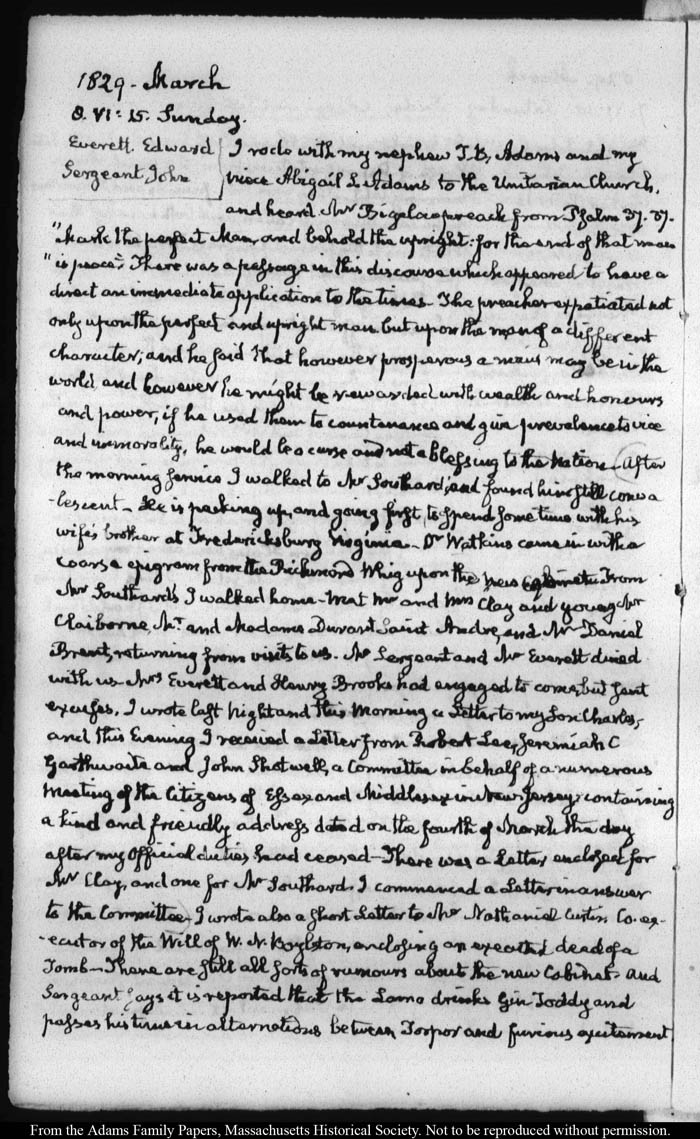 1829 - March
8. VI: 15. Sunday.
Everett. Edward
Sergeant, John
I rode with my nephew T. B. Adams and my
niece Abigail S. Adams to the Unitarian Church,
and heard Mr Bigelow preach from Psalm 37. 37.
"Mark the perfect Man, and behold the upright: for the end of that man
"is peace." There was a passage in this discourse which appeared to have a
direct an immediate application to the times. The preacher expatiated not
only upon the perfect and upright man but upon the man of a different
character; and he said that however prosperous a man may be in the
world and however he might be rewarded with wealth and honours
and power, if he used them to countenance and give prevalence to vice
and immorality, he would be a curse and not a blessing to the Nation - After
the morning service I walked to Mr Southard's, and found him still conva
-lescent - He is packing up, and going first, to spend some time with his
wife's brother at Fredericksburg Virginia - Dr Watkins came in with a
coarse epigram from the Richmond Whig upon the new Cabinet. From
Mr Southard's I walked home - Met Mr and Mrs Clay and young Mr
Claiborne, Mr. and Madame Durant Saint André, and Mr Daniel
Brent, returning from visits to us. Mr Sergeant and Mr Everett dined
with us - Mrs Everett and Henry Brooks had engaged to come, but sent
excuses. I wrote last Night and this Morning a Letter to my Son Charles,
and this Evening I received a Letter from Robert Lee, Jeremiah C
Garthwaite and John Shotwell, a Committee in behalf of a numerous
Meeting of the Citizens of Essex and Middlesex in New Jersey; containing
a kind and friendly address dated on the fourth of March the day
after my Official duties had ceased - There was a Letter enclosed for
Mr Clay, and one for Mr Southard. I commenced a Letter in answer
to the Committee - I wrote also a short Letter to Mr Nathaniel Curtis Co. ex-
-ecutor of the Will of W. N. Boylston, enclosing an executed deed of a
Tomb - There are still all sorts of rumours about the new Cabinet and
Sergeant says it is reported that the Lama drinks Gin Toddy and
passes his time in alternations between Torpor and furious excitement
From the Adams Family Papers, Massachusetts Historical Society. Not to be reproduced without permission.